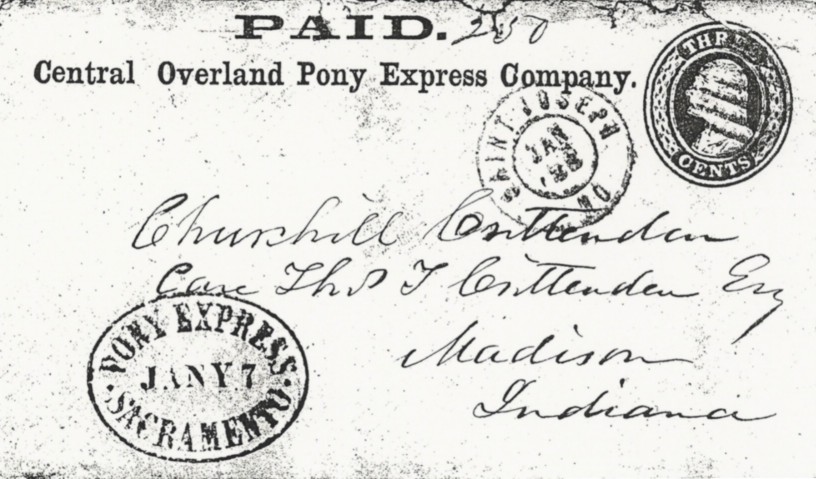 PAID. 250
Central Overland Pony Express Company.
THREE
CENTS
SAINT JOSEPH
JAN
MO
Churchill Crittenden
Care Thos T Crittenden Esq
PONY EXPRESS
JANY 7
SACRAMENTO
Madison
Indiana